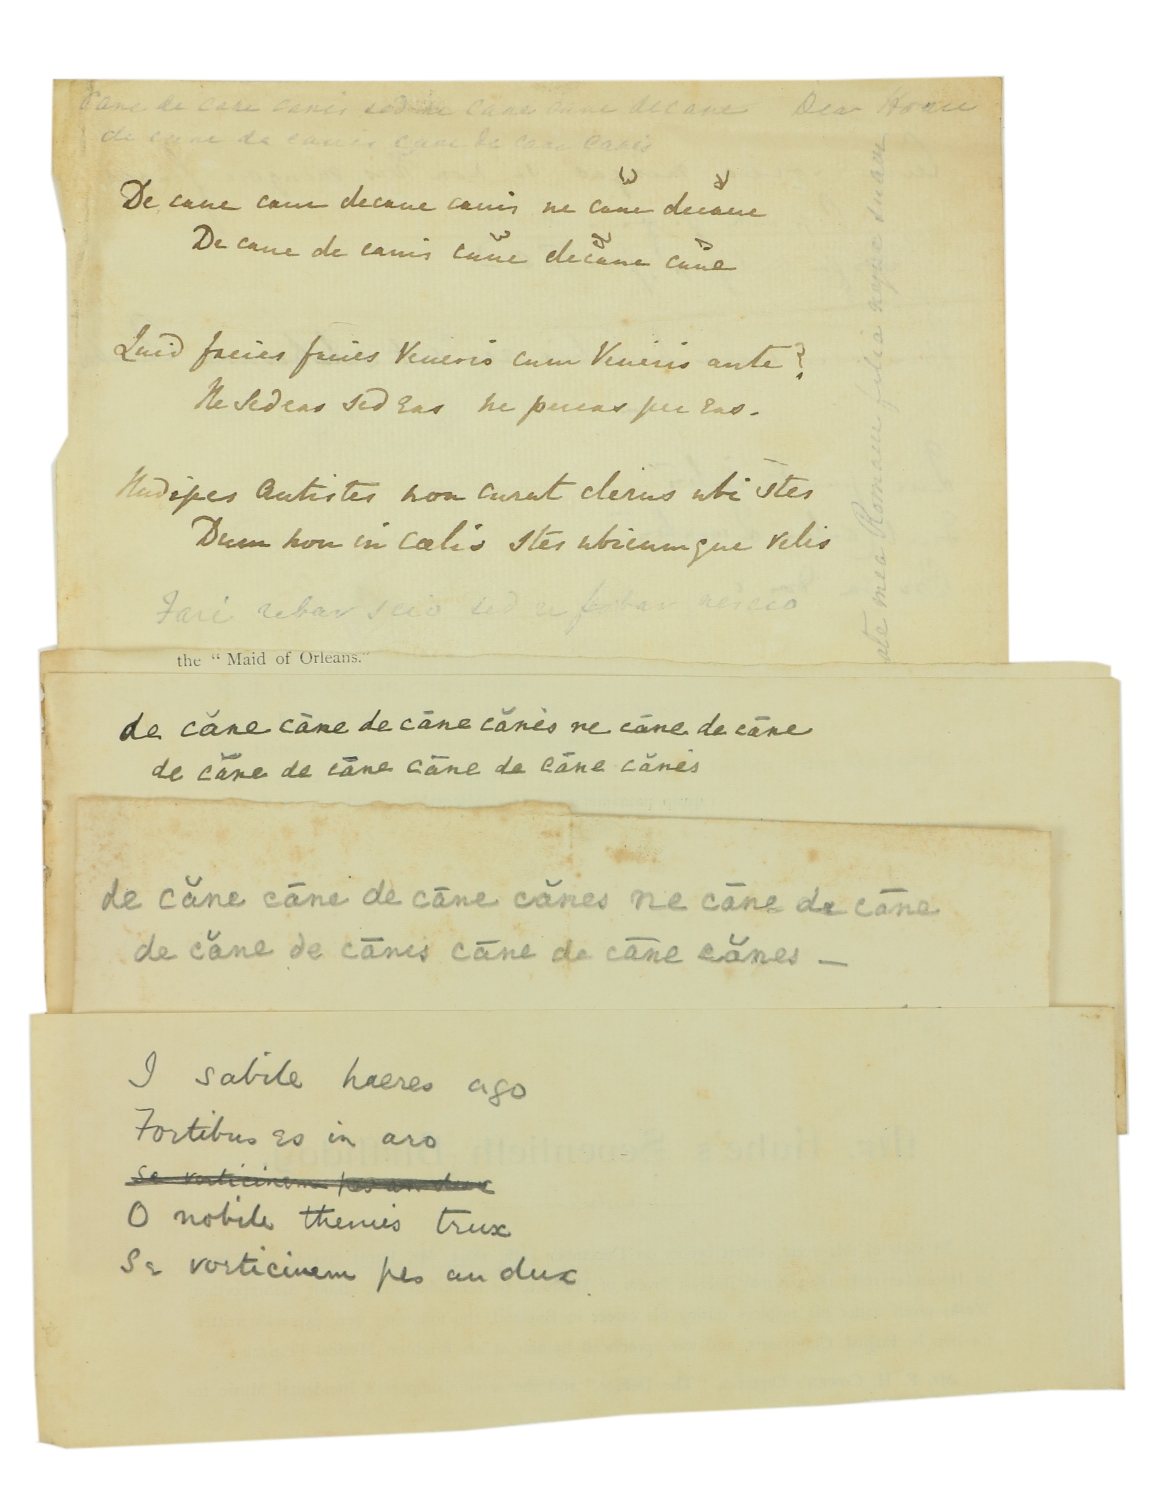 Cane de cane canis sed ne cane cane decane Dear
de cane de canis cane de cane canis
De cane cane decane canis ne cane decane
De cane de canis cane decane cane
Quid facies facies Veneris cum Veneris ante?
Ne sedeas sed eas ne pereas per eas.
Nudipes Antistes non curat clerus ubi stes
Dum non in cœlis stes ubicumque velis
Fari rebar scio sed nescio
ate mea Romam filia neque suam
the “Maid of Orleans.”
de căne cāne de cāne cănis ne cāne de cāne
de căne de cāne cāne de cāne cănis
de căne cāne de cāne cănes ne cāne de cāne
de căne de cānis cāne de cāne cănes —
I sabile haeres ago
Fortibus es in aro
Se vorticinem pes an dux
O nobile themis trux
Se vorticinem pes an dux